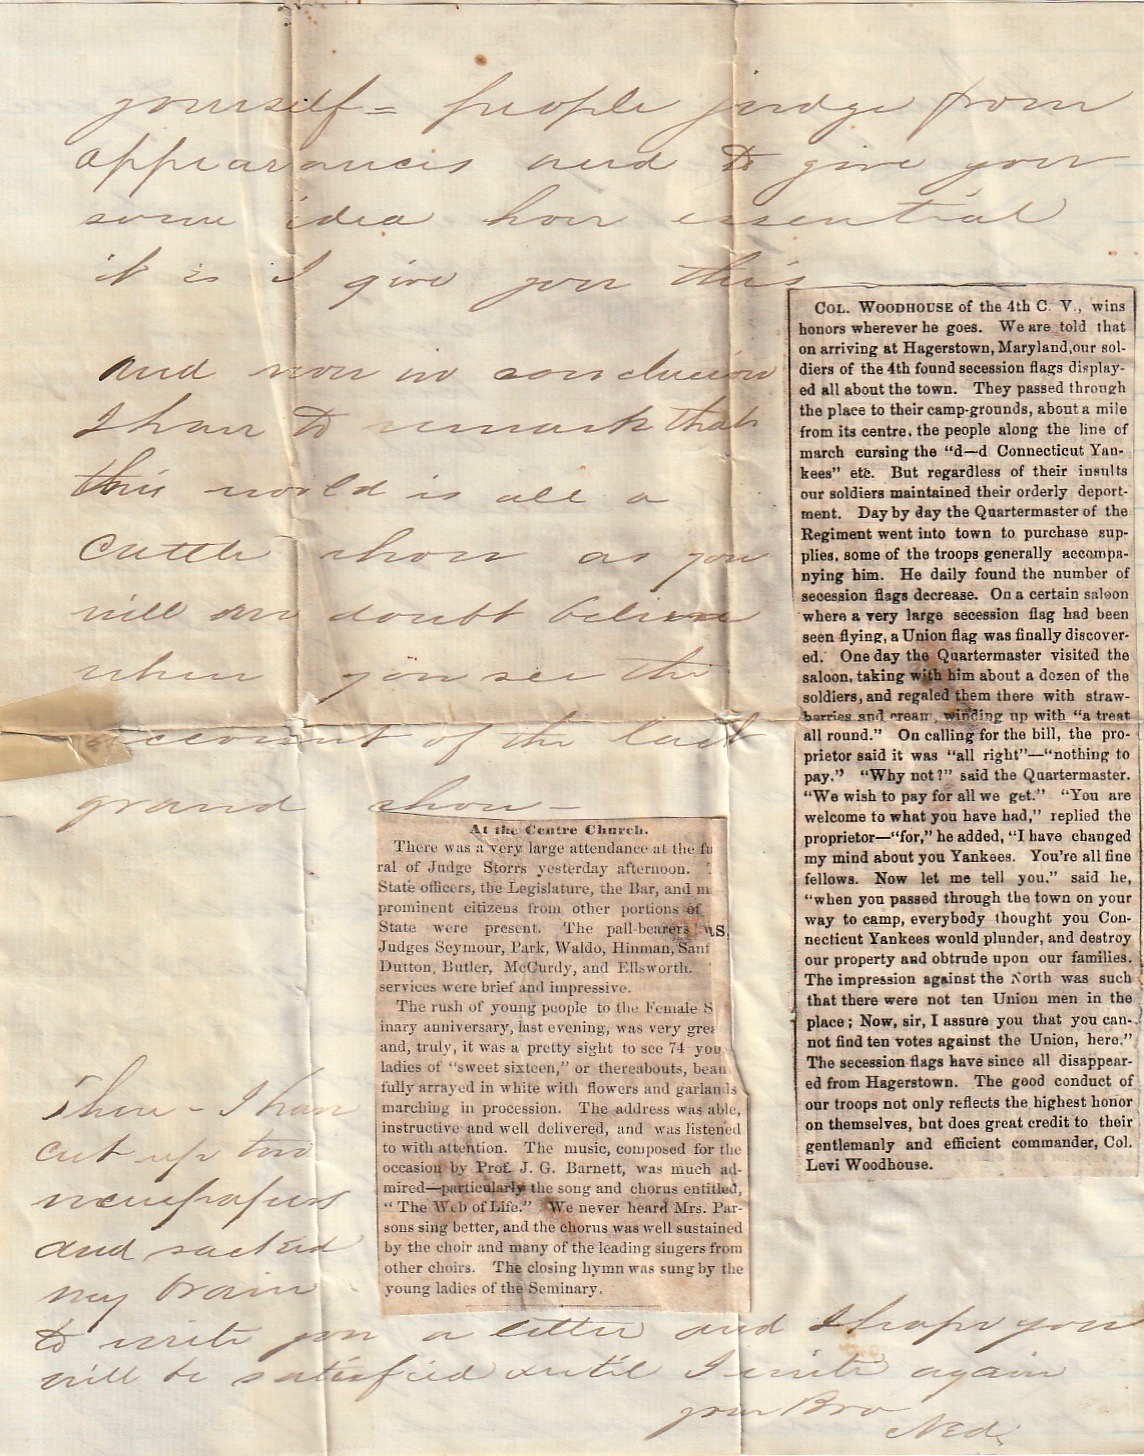 yourself = people judge from
appearances and to give you
some idea how essential
it is I give you this
COL. WOODHOUSE of the 4th C. V., wins
honors wherever he goes. We are told that
on arriving at Hagerstown, Maryland, our sol-
diers of the 4th found secession flags display-
ed all about the town. They passed through
the place to their camp-grounds, about a mile
from its centre, the people along the line of
march cursing the "d—d Connecticut Yan-
kees" etc. But regardless of their insults
our soldiers maintained their orderly deport-
ment. Day by day the Quartermaster of the
Regiment went into town to purchase sup-
plies, some of the troops generally accompa-
nying him. He daily found the number of
secession flags decrease. On a certain saloon
where a very large secession flag had been
seen flying, a Union flag was finally discover-
ed. One day the Quartermaster visited the
saloon, taking with him about a dozen of the
soldiers, and regaled them there with straw-
berries and cream, winding up with "a treat
all round." On calling for the bill, the pro-
prietor said it was "all right"—"nothing to
pay." "Why not?" said the Quartermaster.
"We wish to pay for all we get." "You are
welcome to what you have had," replied the
proprietor—"for," he added, "I have changed
my mind about you Yankees. You're all fine
fellows. Now let me tell you." said he,
"when you passed through the town on your
way to camp, everybody thought you Con-
necticut Yankees would plunder, and destroy
our property and obtrude upon our families.
The impression against the North was such
that there were not ten Union men in the
place; Now, sir, I assure you that you can-
not find ten votes against the Union, here."
The secession flags have since all disappear-
ed from Hagerstown. The good conduct of
our troops not only reflects the highest honor
on themselves, but does great credit to their
gentlemanly and efficient commander, Col.
Levi Woodhouse.
And now in conclusion
I have to remark that
this world is all a
Cattle show as you
will no doubt believe
when you see the
account of the last
grand show —
At the Centre Church.
There was a very large attendance at the fu
ral of Judge Storrs yesterday afternoon.
State officers, the Legislature, the Bar, and m
prominent citizens from other portions of
State were present. The pall-bearers
Judges Seymour, Park, Waldo, Hinman, Sanf
Dutton, Butler, McCurdy, and Ellsworth.
services were brief and impressive.
The rush of young people to the Female S
inary anniversary, last evening, was very grea
and, truly, it was a pretty sight to see 74 you
ladies of "sweet sixteen," or thereabouts, beau
fully arrayed in white with flowers and garlands
marching in procession. The address was able,
instructive and well delivered, and was listened
to with attention. The music, composed for the
occasion by Prof. J. G. Barnett, was much ad-
mired—particularly the song and chorus entitled,
"The Web of Life." We never heard Mrs. Par-
sons sing better, and the chorus was well sustained
by the choir and many of the leading singers from
other choirs. The closing hymn was sung by the
young ladies of the Seminary.
There - I have
cut up two
newspapers
and sacked
my brain
to write you a letter and I hope you
will be satisfied until I write again
your Bro
Ned.